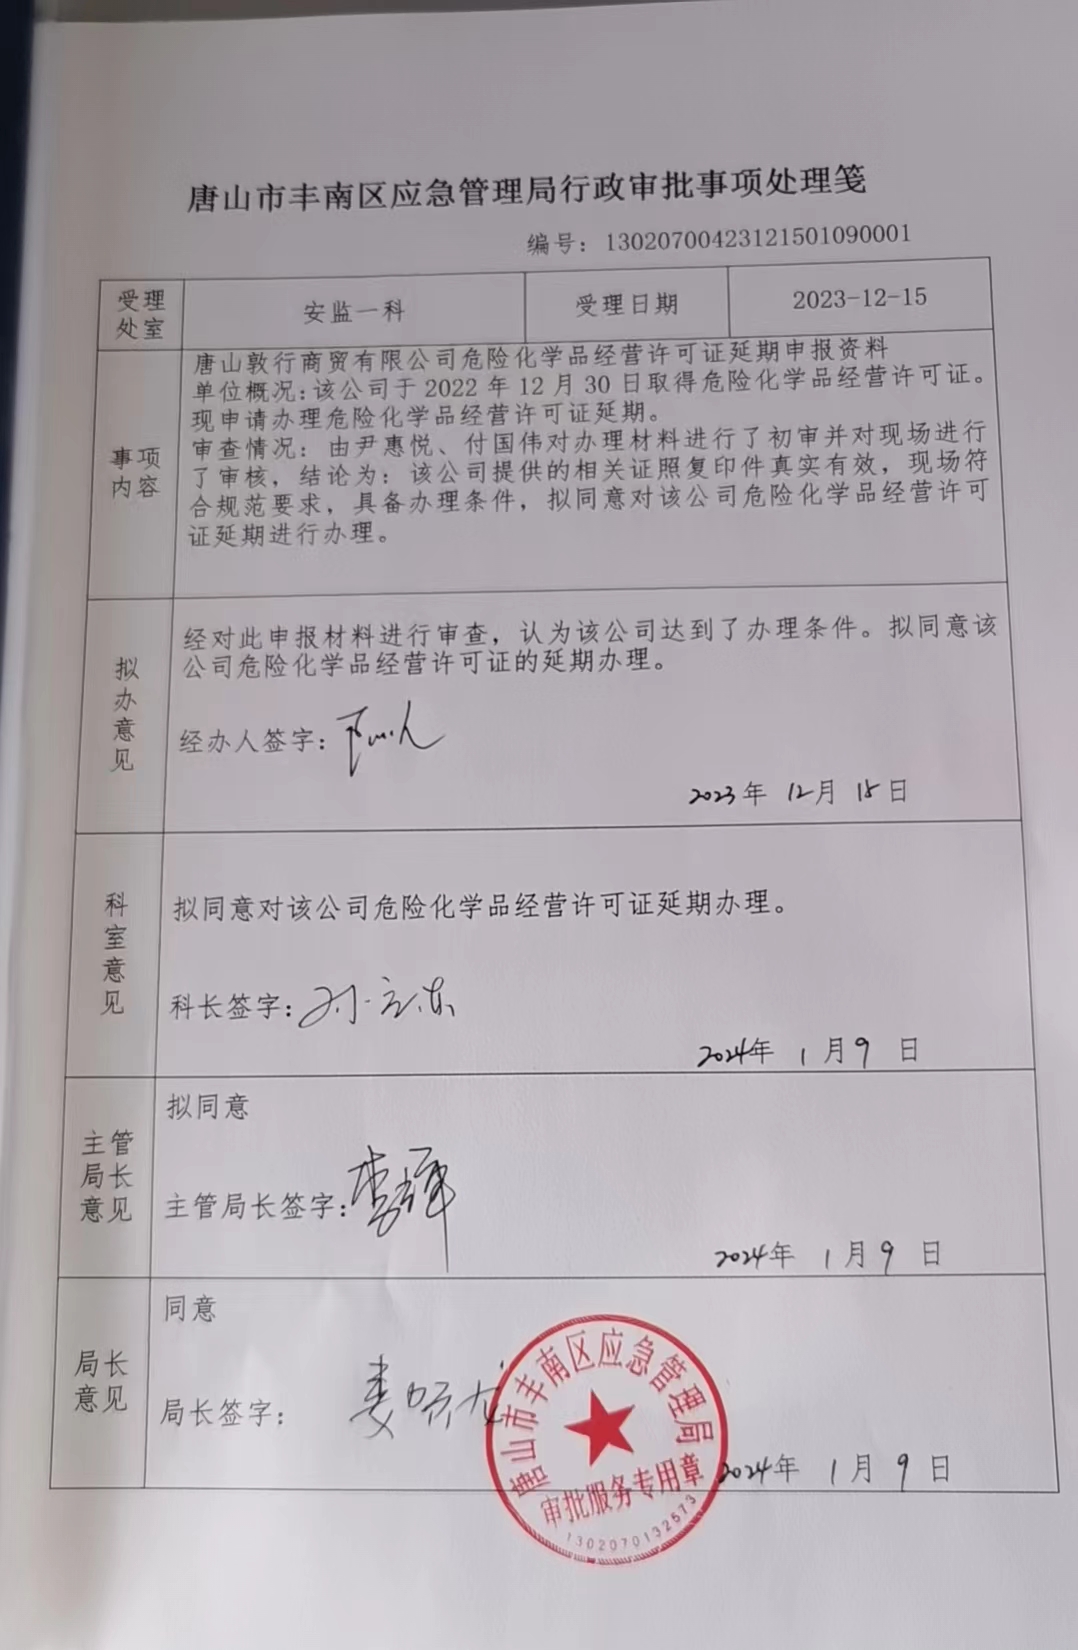 唐山市丰南区应急管理局行政审批事项处理笺
编号：13020700423121501090001
受理
处室
安监一科
受理日期
2023-12-15
事项
内容
唐山敦行商贸有限公司危险化学品经营许可证延期申报资料
单位概况:该公司于2022年12月30日取得危险化学品经营许可证。
现申请办理危险化学品经营许可证延期。
审查情况：由尹惠悦、付国伟对办理材料进行了初审并对现场进行
了审核，结论为：该公司提供的相关证照复印件真实有效，现场符
合规范要求，具备办理条件，拟同意对该公司危险化学品经营许可
证延期进行办理。
拟
办
意
见
经对此申报材料进行审查，认为该公司达到了办理条件。拟同意该
公司危险化学品经营许可证的延期办理。
经办人签字：
2023年 12月 15日
科
室
意
见
拟同意对该公司危险化学品经营许可证延期办理。
科长签字：
2024年 1月9 日
主管
局长
意见
拟同意
主管局长签字：
2024年 1月9 日
局长
意见
同意
局长签字：
2024年 1月 9 日
唐山市丰南区应急管理局
审批服务专用章
1302070132573